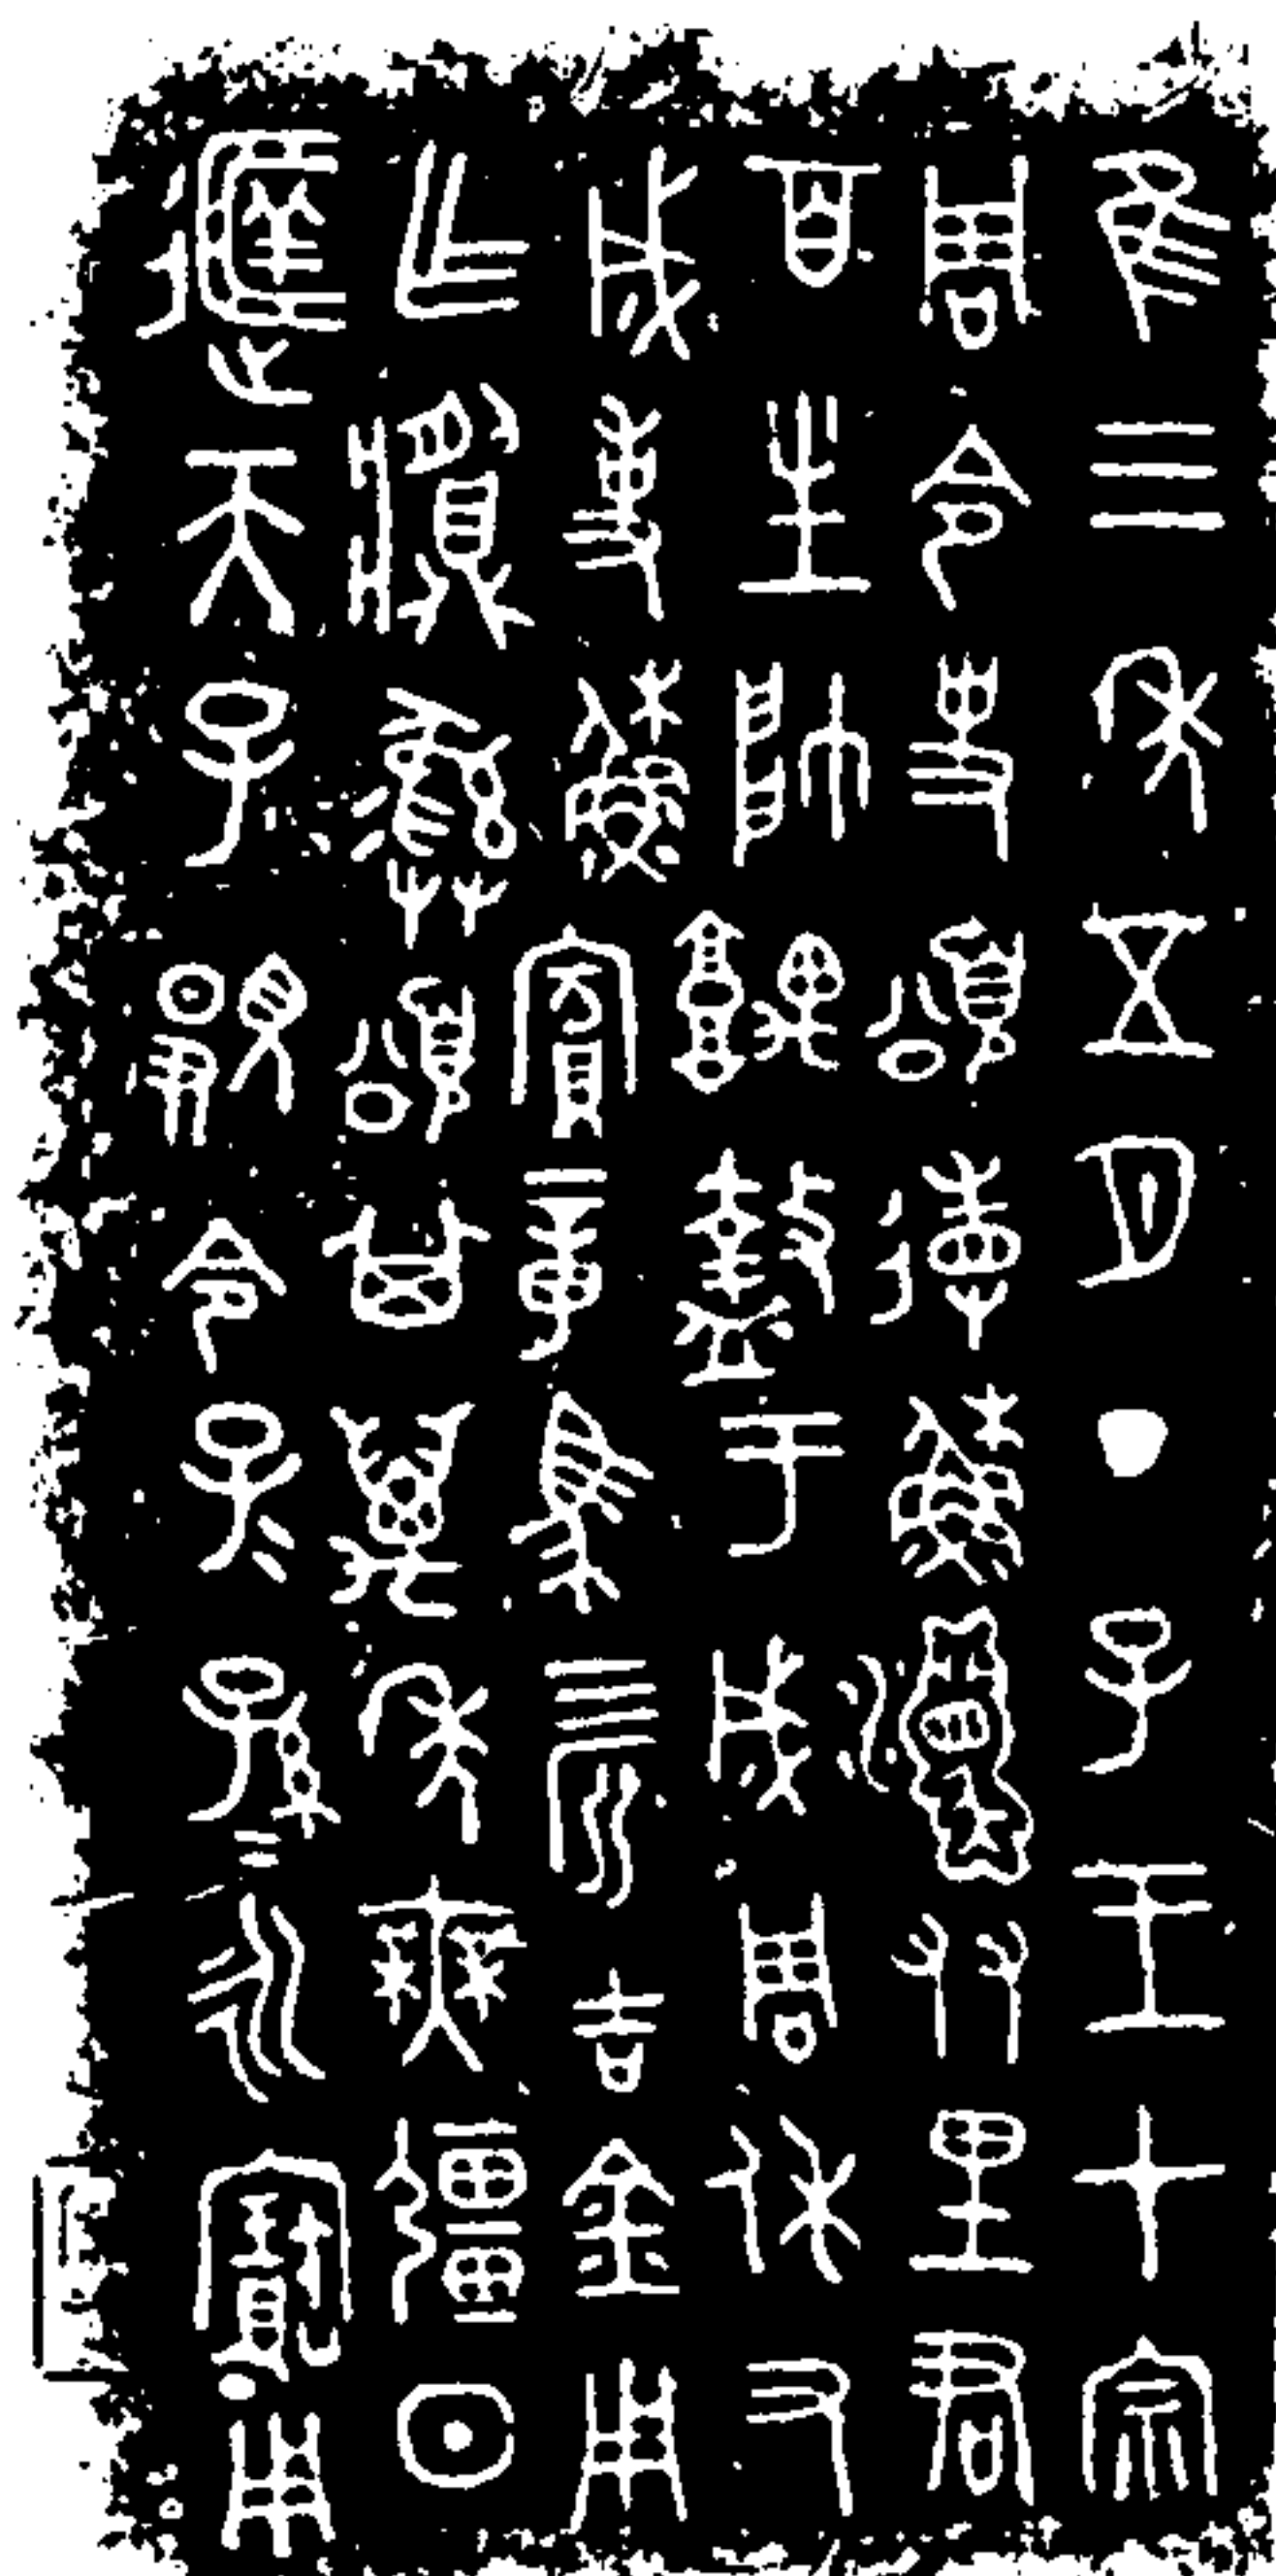 隹三年五月丁子王才宗
周令史頌省穌友里君
百生帥盩于成周休又
成事穌賓章馬亖匹吉金用
乍彝頌其萬年無彊日
天子顯令子＝孫＝永寶用